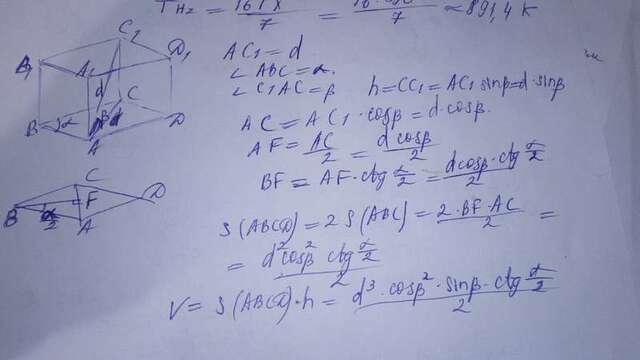 T H₂ = 16TX / 7 = / 7 ≈ 891,4 K
C₁
B₁
A₁
D₁
d
B
α
β
C
A
D
AC₁ = d
∠ABC = α.
∠C₁AC = β
h = CC₁ = AC₁ sinβ = d·sinβ
AC = AC₁·cosβ = d·cosβ.
AF = AC/2 = d cosβ/2
BF = AF·ctg α/2 = d cosβ·ctg α/2 / 2
C
B
F
D
α/2
A
S(ABCD) = 2S(ABC) = 2·BF·AC / 2 =
= d² cos²β ctg α/2 / 2
V = S(ABCD)·h = d³·cosβ²·sinβ·ctg α/2 / 2